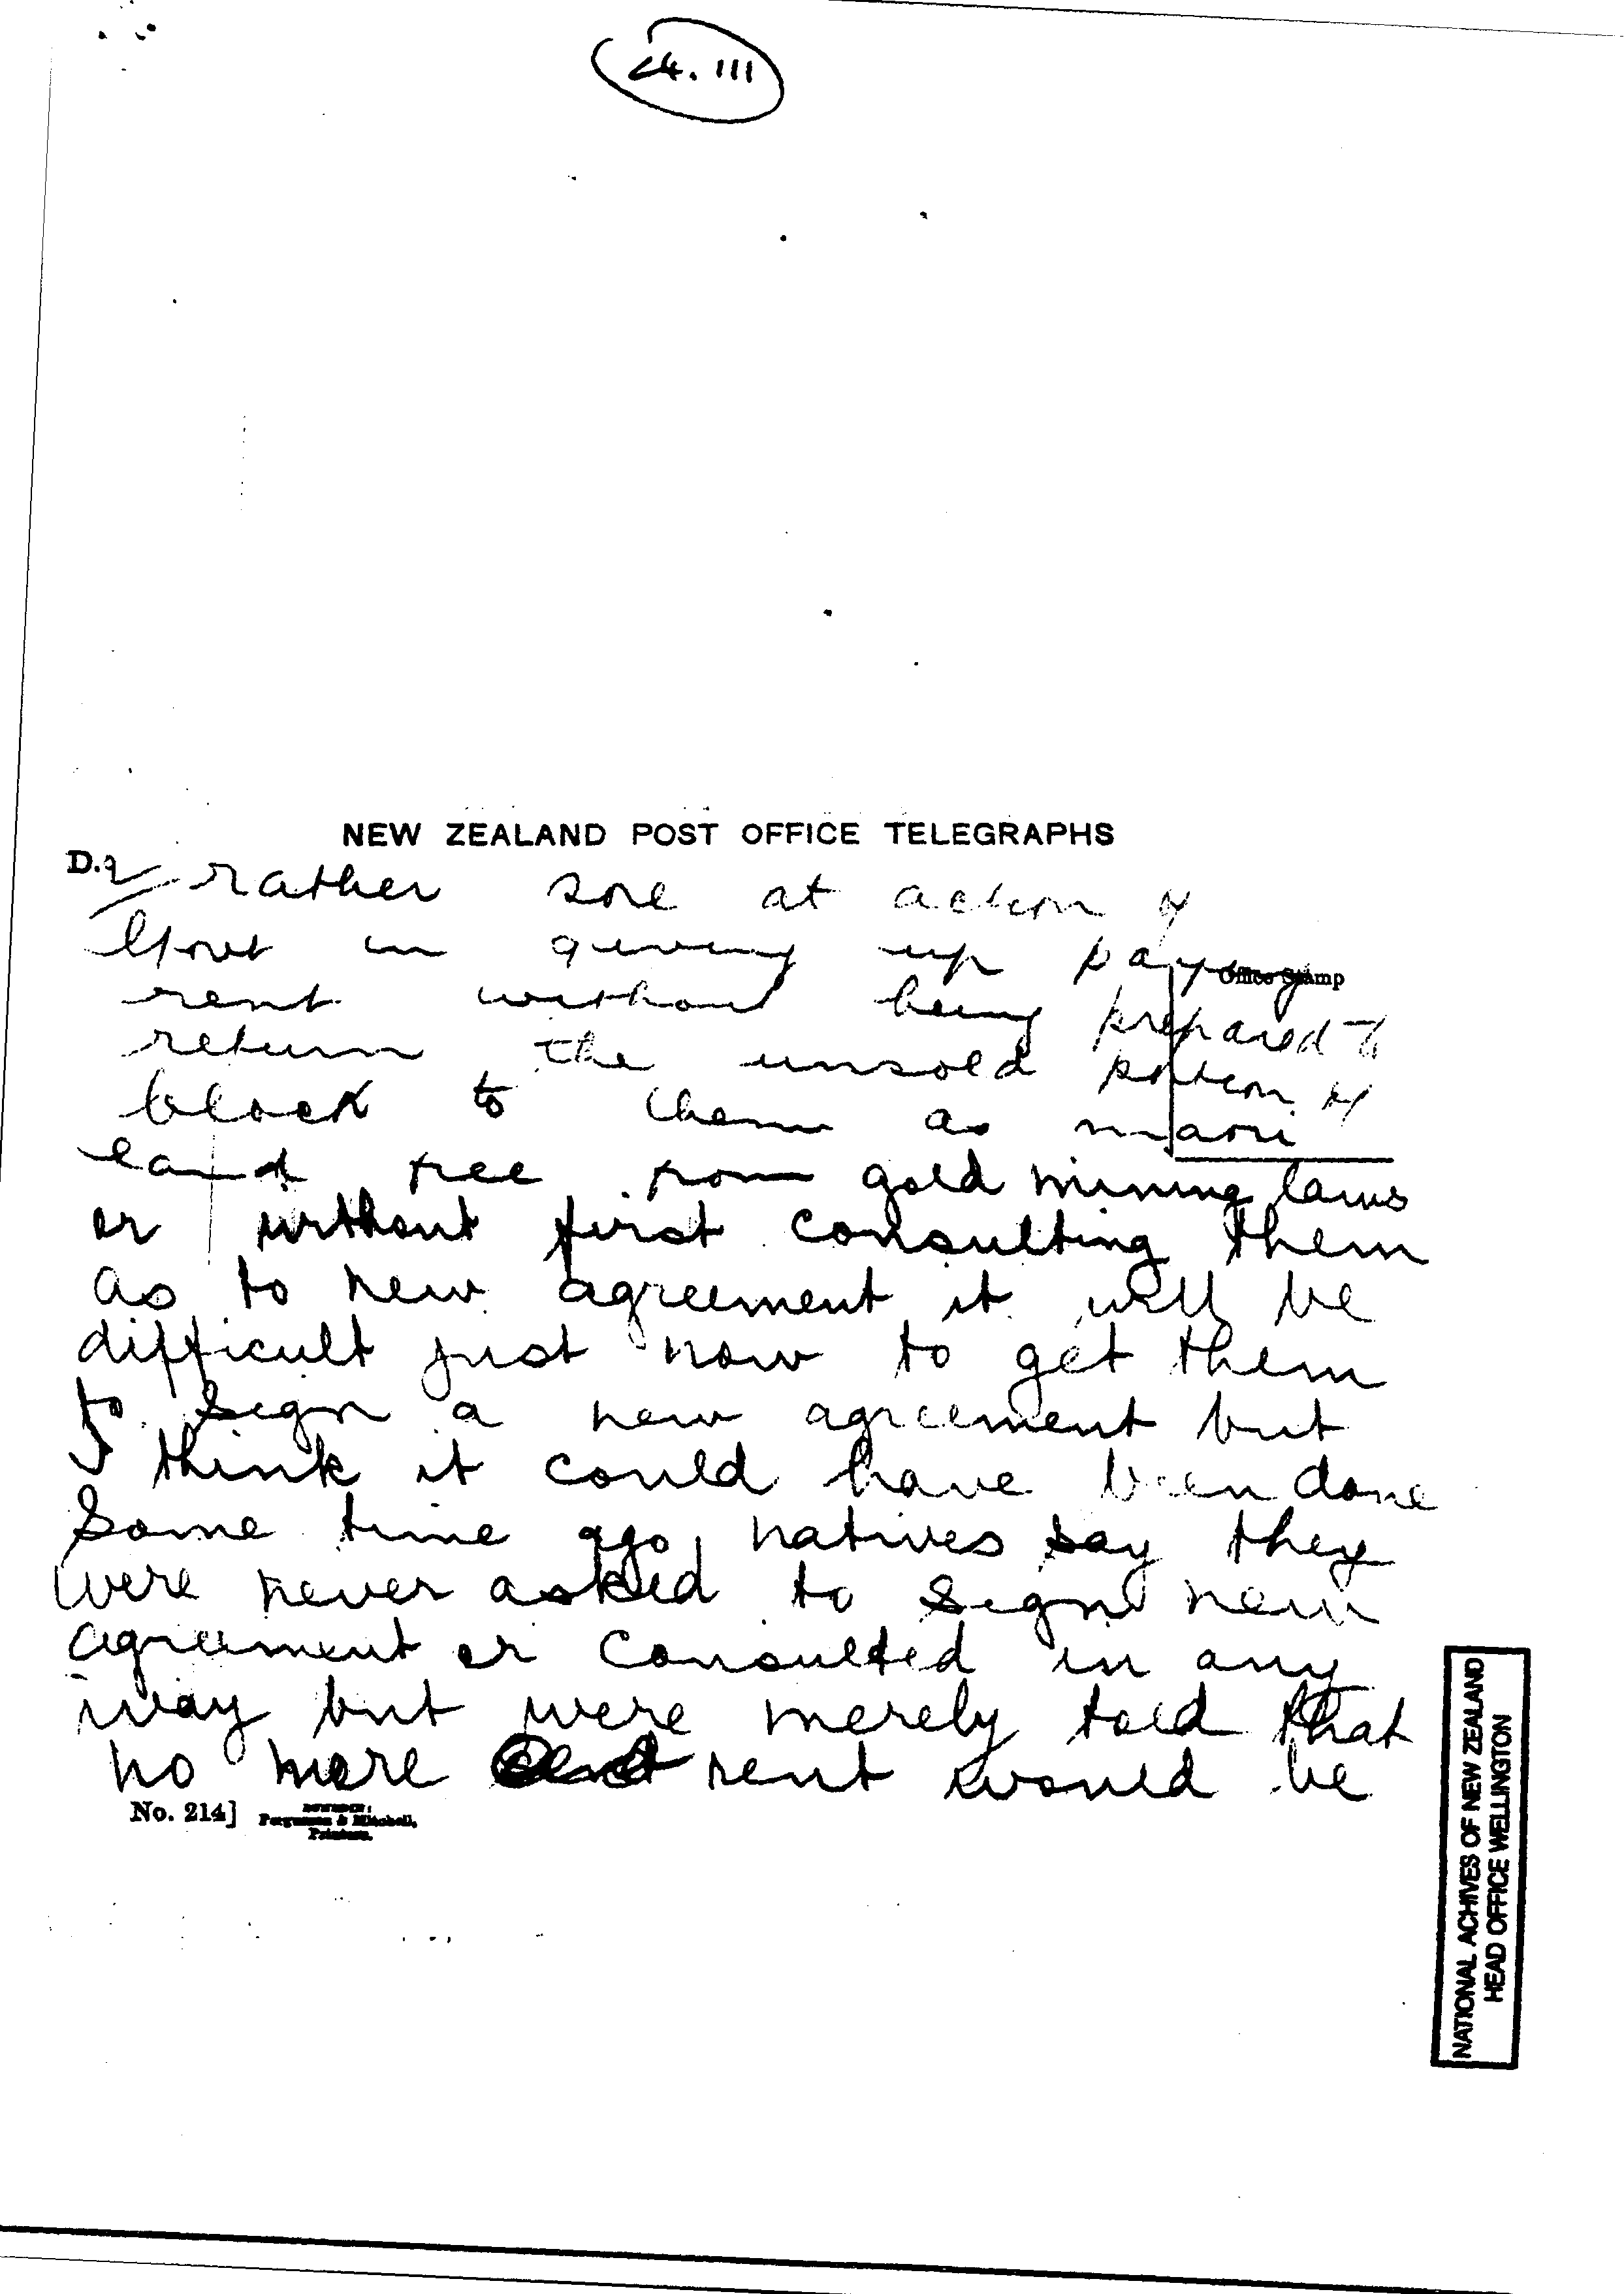 C4. 111
NEW ZEALAND POST OFFICE TELEGRAPHS
D.2 rather sore at action of
Govt in giving up paying
Office Stamp
rent without being prepared to
return the unsold portion of
block to them as maori
land free from gold mining laws
or without first consulting them
as to new agreement it will be
difficult just now to get them
to sign a new agreement but
I think it could have been done
some time ago natives say they
were never asked to sign new
agreement or consulted in any
way but were merely told that
no more rent would be
No. 214]
Ferguson & Mitchell,
Printers.
NATIONAL ACHIVES OF NEW ZEALAND
HEAD OFFICE WELLINGTON